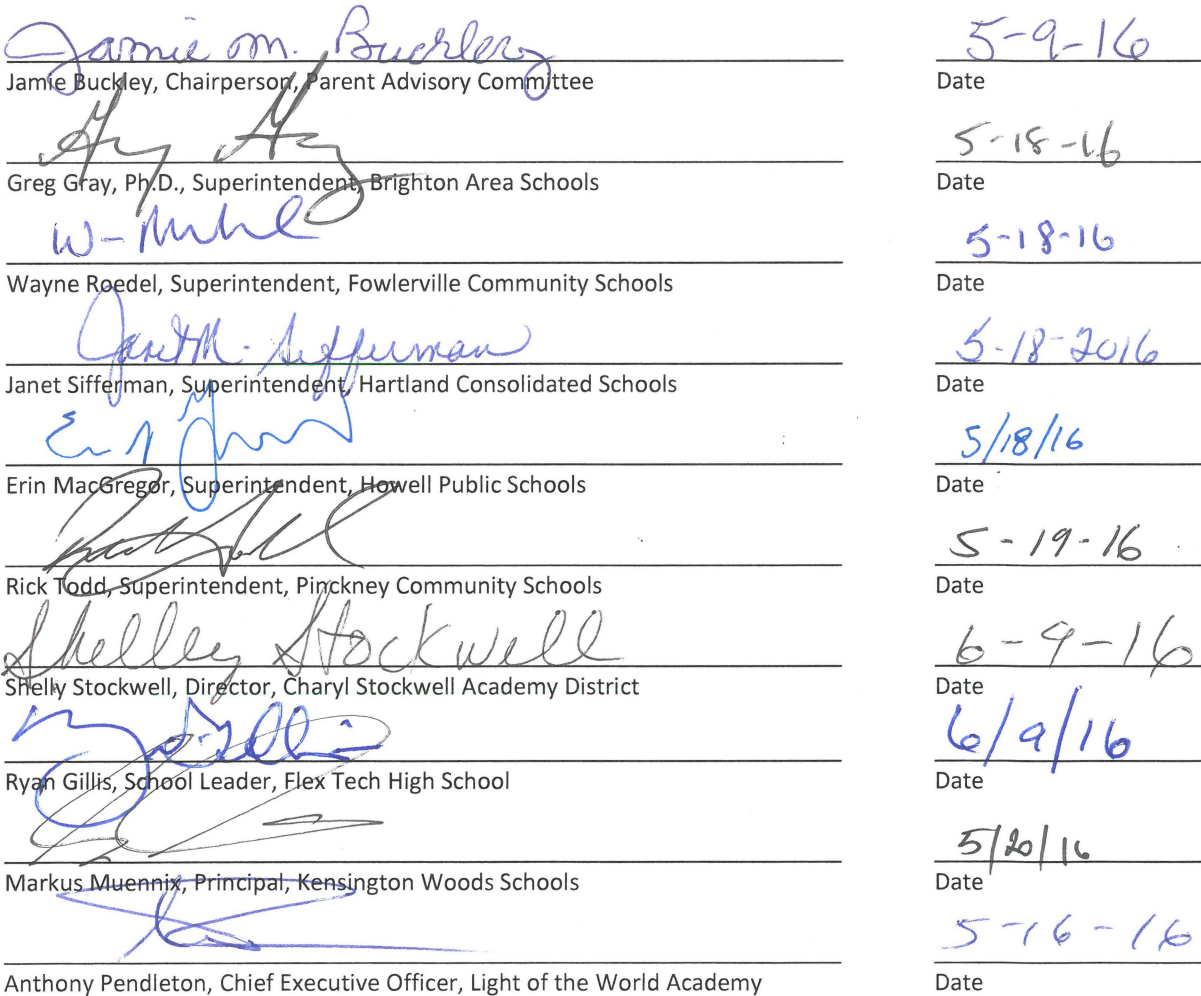 Jamie M. Buckley 5-9-16
Jamie Buckley, Chairperson, Parent Advisory Committee Date
5-18-16
Greg Gray, Ph.D., Superintendent, Brighton Area Schools Date
5-18-16
Wayne Roedel, Superintendent, Fowlerville Community Schools Date
Janet M. Sifferman 5-18-2016
Janet Sifferman, Superintendent, Hartland Consolidated Schools Date
5/18/16
Erin MacGregor, Superintendent, Howell Public Schools Date
5-19-16
Rick Todd, Superintendent, Pinckney Community Schools Date
Shelley Stockwell 6-9-16
Shelly Stockwell, Director, Charyl Stockwell Academy District Date
6/9/16
Ryan Gillis, School Leader, Flex Tech High School Date
5/20/16
Markus Muennix, Principal, Kensington Woods Schools Date
5-16-16
Anthony Pendleton, Chief Executive Officer, Light of the World Academy Date